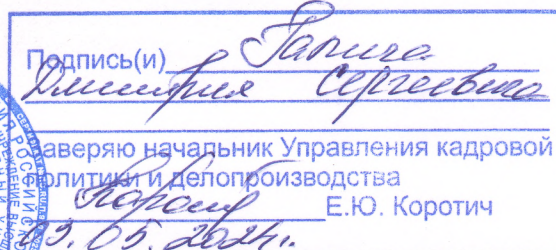 Подпись(и) Гапича
Дмитрия Сергеевича
заверяю начальник Управления кадровой
политики и делопроизводства
Е.Ю. Коротич
05.2024г.